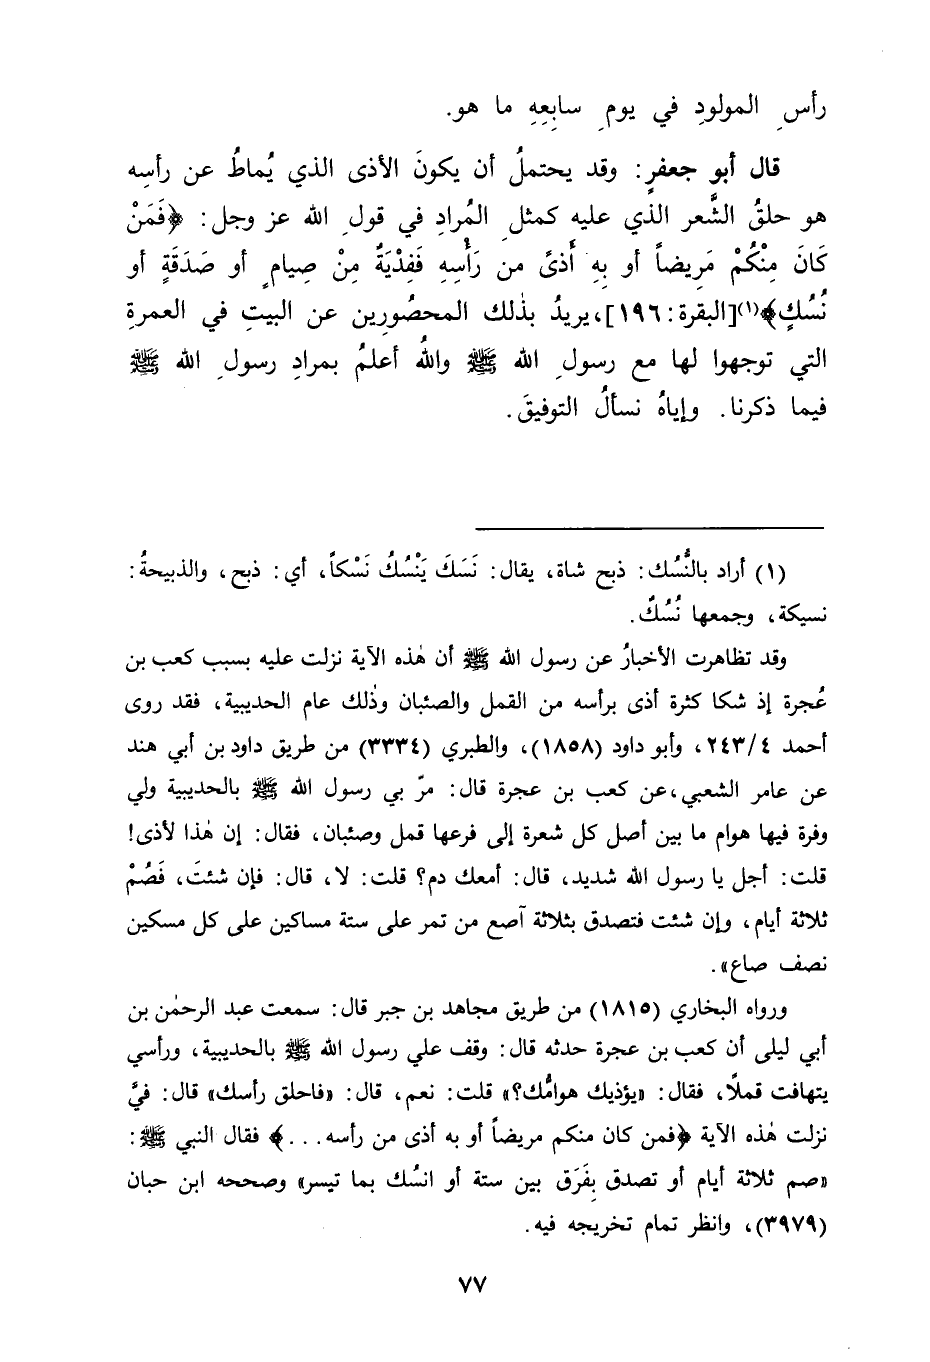 رأسِ المولودِ في يومِ سابِعِهِ ما هو.
قال أبو جعفرٍ: وقد يحتملُ أن يكونَ الأذى الذي يُماطُ عن رأسِه
هو حلقُ الشَّعر الذي عليه كمثلِ المُرادِ في قولِ الله عز وجل: ﴿فَمَنْ
كَانَ مِنْكُمْ مَرِيضاً أو بِهِ أَذىً من رَأْسِهِ فَفِدْيَةٌ مِنْ صِيامٍ أو صَدَقَةٍ أو
نُسُكٍ﴾(١)[البقرة: ١٩٦]، يريدُ بذٰلك المحصُورين عن البيتِ في العمرةِ
التي توجهوا لها مع رسولِ الله ﷺ واللهُ أعلمُ بمرادِ رسولِ الله ﷺ
فيما ذكرنا. وإياهُ نسألُ التوفيقَ.
(١) أراد بالنُّسُك: ذبح شاة، يقال: نَسَكَ يَنْسُكُ نَسْكاً، أي: ذبح، والذبيحةُ:
نسيكة، وجمعها نُسُكٌ.
وقد تظاهرت الأخبارُ عن رسول الله ﷺ أن هٰذه الآية نزلت عليه بسبب كعب بن
عُجرة إذ شكا كثرة أذى برأسه من القمل والصئبان وذٰلك عام الحديبية، فقد روى
أحمد ٢٤٣/٤، وأبو داود (١٨٥٨)، والطبري (٣٣٣٤) من طريق داود بن أبي هند
عن عامر الشعبي، عن كعب بن عجرة قال: مرّ بي رسول الله ﷺ بالحديبية ولي
وفرة فيها هوام ما بين أصل كل شعرة إلى فرعها قمل وصئبان، فقال: إن هٰذا لأذى!
قلت: أجل يا رسول الله شديد، قال: أمعك دم؟ قلت: لا، قال: فإن شئتَ، فَصُمْ
ثلاثة أيام، وإن شئت فتصدق بثلاثة آصع من تمر على ستة مساكين على كل مسكين
نصف صاع».
ورواه البخاري (١٨١٥) من طريق مجاهد بن جبر قال: سمعت عبد الرحمٰن بن
أبي ليلى أن كعب بن عجرة حدثه قال: وقف علي رسول الله ﷺ بالحديبية، ورأسي
يتهافت قملًا، فقال: «يؤذيك هوامُّك؟» قلت: نعم، قال: «فاحلق رأسك» قال: فيَّ
نزلت هٰذه الآية ﴿فمن كان منكم مريضاً أو به أذى من رأسه...﴾ فقال النبي ﷺ:
«صم ثلاثة أيام أو تصدق بِفَرَق بين ستة أو انسُك بما تيسر» وصححه ابن حبان
(٣٩٧٩)، وانظر تمام تخريجه فيه.
٧٧